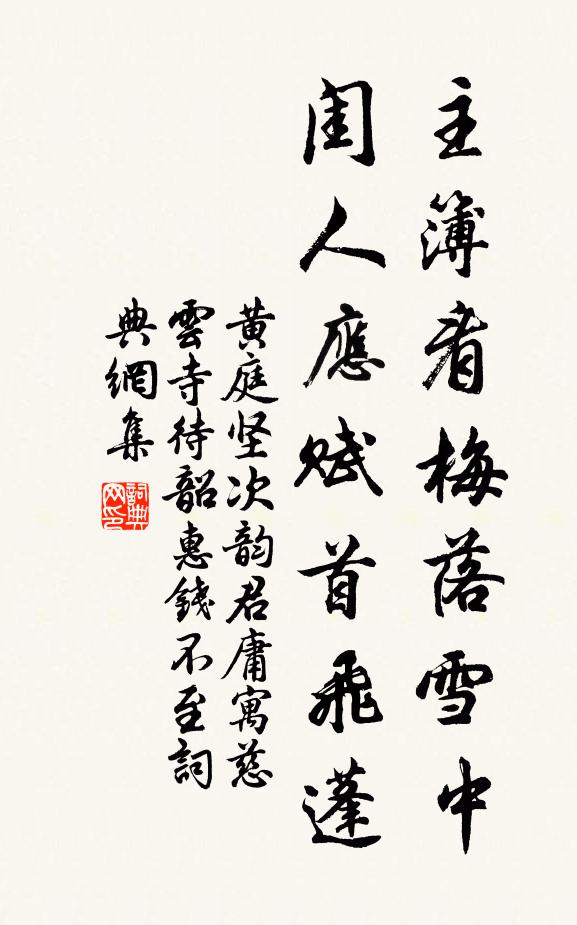 主簿看梅落雪中
閨人應賦首飛蓬
黄庭坚次韵君庸寓慈
雲寺待韶惠錢不至詞
典網集
詞典
网印